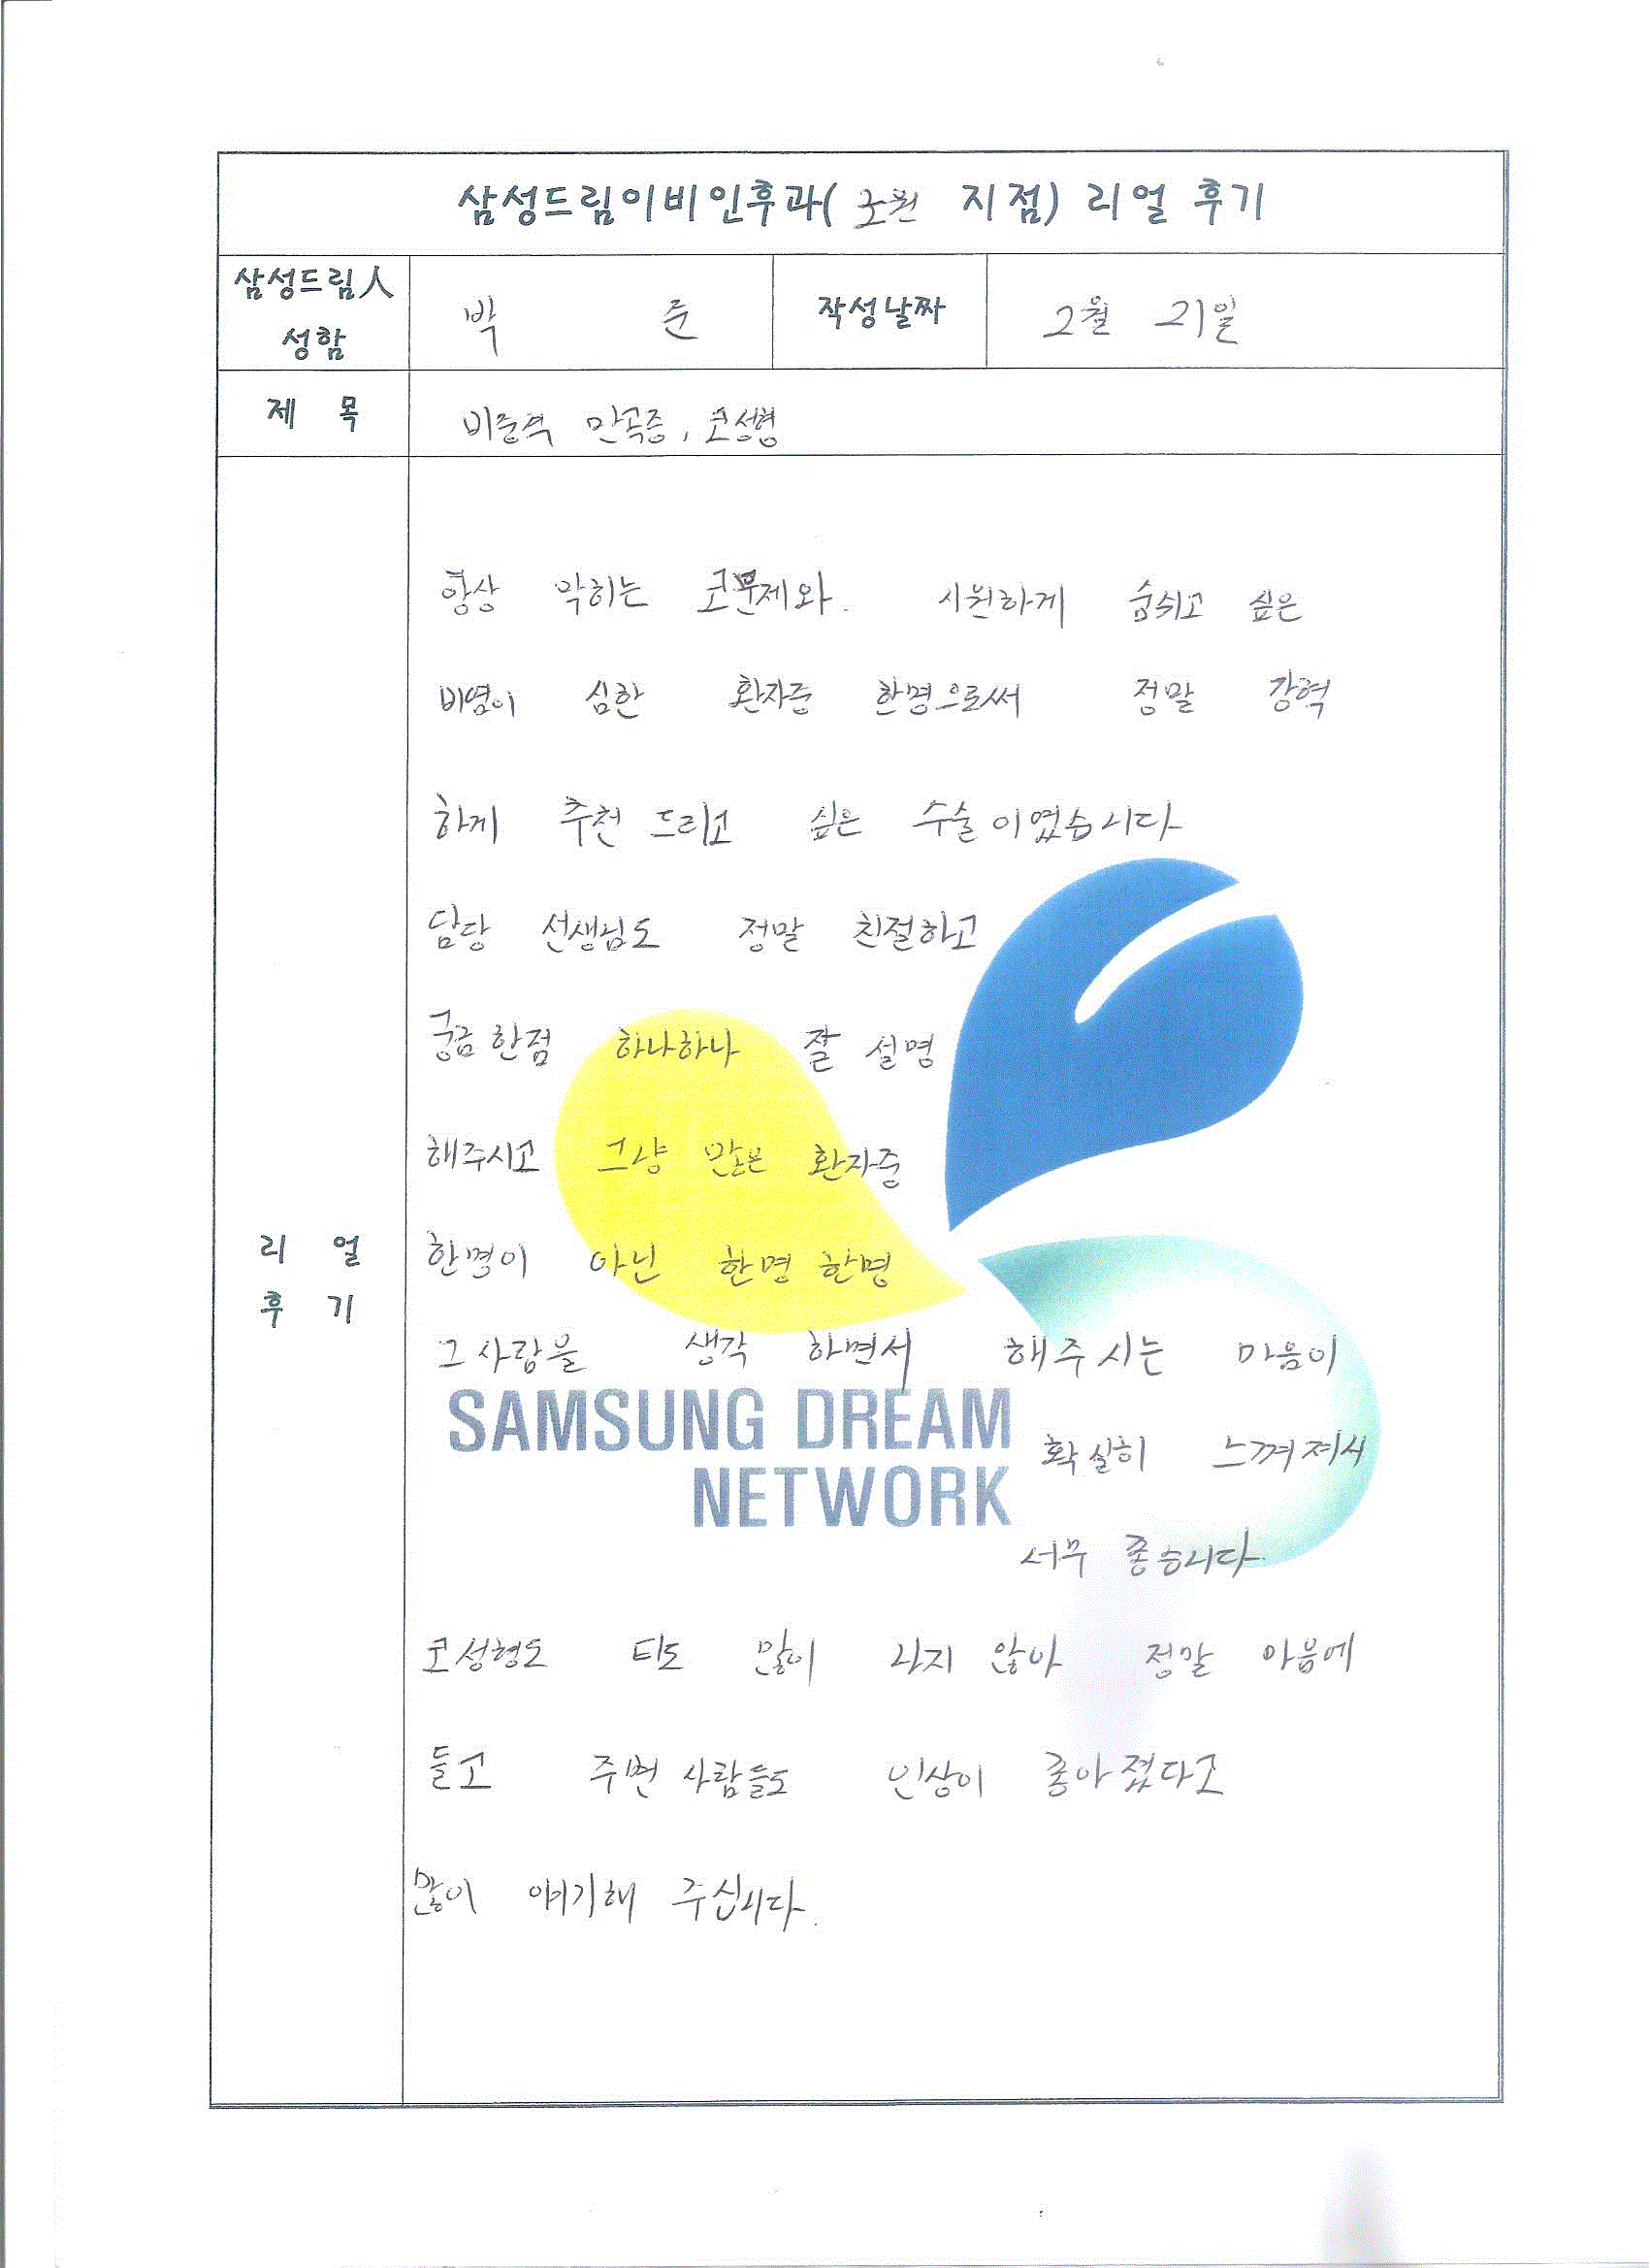 삼성드림이비인후과( 수원 지점) 리얼 후기
삼성드림人 성함
박 준
작성날짜
2월 21일
제 목
비중격 만곡증, 코성형
리 얼
후 기
항상 막히는 코문제와. 시원하게 숨쉬고 싶은
비염이 심한 환자중 한명으로써 정말 강력
하게 추천 드리고 싶은 수술이였습니다
담당 선생님도 정말 친절하고
궁금한점 하나하나 잘 설명
해주시고 그냥 많은 환자중
한명이 아닌 한명 한명
그 사람을 생각 하면서 해주시는 마음이
SAMSUNG DREAM
확실히 느껴져서
NETWORK
너무 좋습니다
코성형도 티도 많이 나지 않아 정말 마음에
들고 주변 사람들도 인상이 좋아졌다고
많이 얘기해 주십니다.